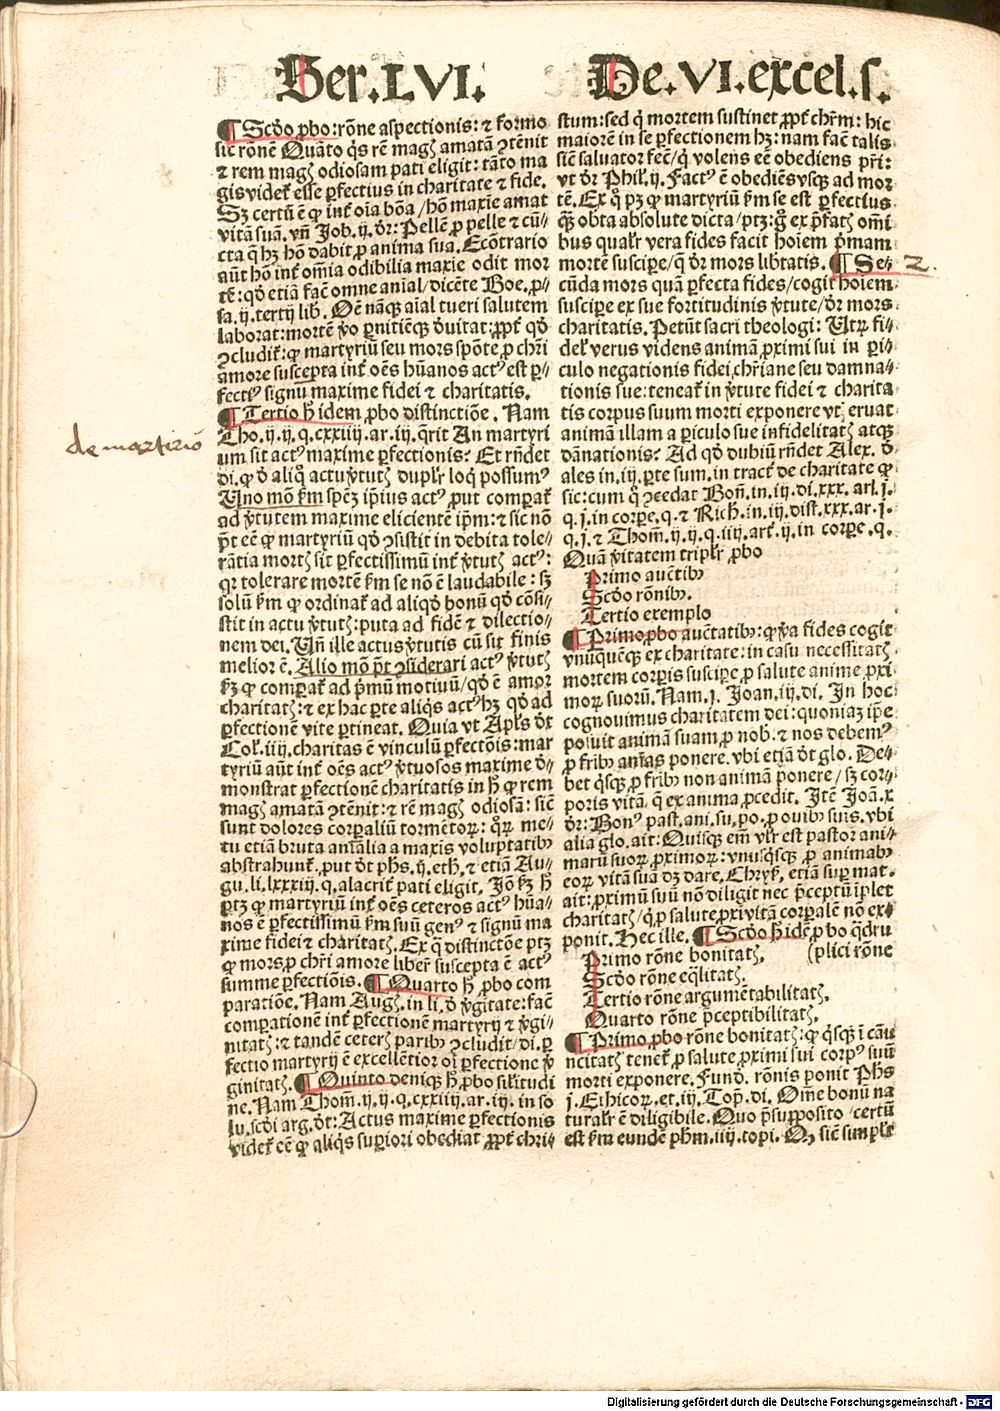 Ser.LVI. De.VI.excel.s.
¶ Scḋo ꝓbo:rōne aspectionis: ⁊ formo
sic̄ rōnem̄ Quāto q̇s rē magꝫ amatā ↄtēnit
⁊ rem magꝫ odiosam pati eligit: tāto ma
gis videt᷑ esse ꝑfectius in charitate ⁊ fide.
Sꝫ certū ē ꝙ int᷑ oīa bōa/hō maxīe amat
vitā suā. vn̄ Job.ij.dr̄: Pellē ꝓ pelle ⁊ cū-
cta q̄ hꝫ hō dabit ꝓ anima sua. Ecōtrario
aūt hō int᷑ om̄ia odibilia maxīe odit mor
tē: qḋ etiā fac̄ omne anīal/dicēte Boe.ꝓ-
sa.ij.tertij lib. Oē nāqꝫ aīal tueri salutem
laborat:mortē v̇o ꝑnitiēqꝫ ḋuitat:ꝓpt᷑ qḋ
ↄcludit᷑:ꝙ martyriū seu mors spōte ꝓ chr̄i
amore suscepta int᷑ oēs hūanos actꝰ est ꝑ-
fectiꝰ signū maxime fidei ⁊ charitatis.
¶ Tertio h̄ idem ꝓbo distinctiōe. Nam
de martirio
Tho.ij.ij.q.cxxiiij.ar.iij.q̄rit An martyri
um sit actꝰ maxime ꝑfectionis: Et rn̄det
di.ꝙ ḋ aliq̊ actu v̇tutꝫ duplr̄ loq̇ possumꝰ
Uno mō ẜm spēꝫ ip̄ius actꝰ ꝓut comparat᷑
ad v̇tutem maxime elicientē ip̄m:⁊ sic nō
pt̄ eē ꝙ martyriū qḋ ↄsistit in debita tole-
rātia mortꝫ sit ꝑfectissimū int᷑ v̇tutꝫ actꝰ:
qꝛ tolerare mortē ẜm se nō ē laudabile: sꝫ
solū ẜm ꝙ ordinat᷑ ad aliqḋ bonū qḋ cōsi-
stit in actu v̇tutꝫ:puta ad fidē ⁊ dilectio-
nem dei. Vn̄ ille actus v̇tutis cū sit finis
melior ē. Alio mō pt̄ ↄsiderari actꝰ v̇tutꝫ
ẜꝫ ꝙ comꝑat᷑ ad p̄mū motiuū/qḋ ē amor
charitatꝫ:⁊ ex hac ꝑte aliq̇s actꝰ hꝫ qḋ ad
ꝑfectionē vite ꝑtineat. Quia vt Apl̄s dt̄
Col.iij.charitas ē vinculū ꝑfectōis:mar
tyriū aūt int᷑ oēs actꝰ v̇tuosos maxime ḋ-
monstrat ꝑfectionē charitatis in h̄ ꝙ rem
magꝫ amatā ↄtēnit:⁊ rē magꝫ odiosā: sic̄
sunt dolores corꝑaliū tormētoꝝ: q̊ꝝ me-
tu etiā bruta an̄alia a maxis voluptatibꝰ
abstrahunt᷑.ꝓut dt̄ phs.ij.eth.⁊ etiā Au-
gu.li.lxxxiij.q.alacrit᷑ pati eligit. Jō ẜꝫ h̄
ptꝫ ꝙ martyriū int᷑ oēs ceteros actꝰ hūa-
nos ē ꝑfectissimū ẜm suū genꝰ ⁊ signū ma
xime fidei ⁊ charitatꝫ. Ex q̊ distinctōe ptꝫ
ꝙ mors ꝓ chr̄i amore liber᷑ suscepta ē actꝰ
summe ꝑfectiōis. ¶ Quarto h̄ ꝓbo com
paratiōe. Nam Augꝫ.in li.ḋ v̇gītate:fac̄
comꝑationē int᷑ ꝑfectionē martyrij ⁊ v̇gi-
nitatꝫ:⁊ tandē ceterꝫ paribꝰ ↄcludit/di.ꝑ
fectio martyrij ē excellētior oī ꝑfectione v̇
ginitatꝫ. ¶ Quinto deniqꝫ h̄ ꝓbo sil̄itudi
ne. Nam Thom̄.ij.ij.q.cxxiiij.ar.iij.in so
lu.scḋi arg.dt̄: Actus maxime ꝑfectionis
videt᷑ eē ꝙ aliq̇s suꝑiori obediat ꝓpt᷑ chri-
stum:sed q̇ mortem sustinet ꝓpt᷑ chr̄m: hic
maiorē in se ꝑfectionem hꝫ: nam fac̄ talis
sic̄ saluator fec̄/q̇ volens eē obediens pr̄i:
vt dr̄ Phil̄.ij. Factꝰ ē obediēs vsqꝫ ad mor
tē. Ex q̊ pꝫ ꝙ martyriū ẜm se est ꝑfectius
q̄ꝫ obta absolute dicta/ptꝫ:g̊ ex p̄fatꝫ om̄i
bus qualr̄ vera fides facit hoīem p̄mam
mortē suscipe/q̄ dr̄ mors lib̄tatis. ¶ Se- 2.
cūda mors quā ꝑfecta fides/cogit hoīem
suscipe ex sue fortitudinis v̇tute/dr̄ mors
charitatis. Petūt sacri theologi: Utꝝ fi-
del᷑ verus videns animā ꝓximi sui in ꝑi-
culo negationis fidei chr̄iane seu damna-
tionis sue:teneat᷑ in v̇tute fidei ⁊ charita
tis corpus suum morti exponere vt eruat
animam illam a ꝑiculo sue infidelitatꝫ atqꝫ
dānationis? Ad qḋ dubiū rn̄det Alex. ḋ
ales in.iij.ꝑte sum.in tract᷑ de charitate ꝙ
sic:cum q̊ ↄcedat Bon̄.in.iij.di.xxx.art.j.
q.j.in corpe.q.⁊ Rich.in.iij.dist.xxx.ar.j.
q.j.⁊ Thom̄.ij.ij.q.iiij.art.ij.in corpe.q.
Quā v̇itatem triplr̄ ꝓbo
Primo auc̄tibꝰ
Scḋo rōnibꝰ.
Tertio exemplo
¶ Primo ꝓbo auc̄tatibꝰ:ꝙ v̇a fides cogit
vnūquēqꝫ ex charitate:in casu necessitatꝫ
mortem corpis suscipe ꝓ salute anime ꝓxi
moꝝ suorū. Nam.j. Joan.iij.di. In hoc
cognouimus charitatem dei:quoniaꝫ ip̄e
posuit animā suam ꝓ nob.⁊ nos debemꝰ
ꝓ fribꝰ aīas ponere. vbi etiā dt̄ glo. De-
bet q̇sqꝫ ꝓ fribꝰ non animā ponere/sꝫ cor-
poris vitā/q̄ ex anima ꝓcedit. Itē Joā.x
dr̄: Bonꝰ past.ani.su.po.ꝓ ouibꝰ suis.vbi
alia glo.ait: Quisqꝫ em̄ vlr̄ est pastor ani-
marū suoꝝ ꝓximoꝝ: vnusq̇sqꝫ ꝓ animabꝰ
eoꝝ vitā suā dꝫ dare. Chryẜ. etiā suꝑ mat.
ait:ꝓximū suū nō diligit nec p̄ceptū īplet
charitatꝫ/q̇ ꝓ salute ꝓxi vitā corꝑalē nō ex-
ponit. Hec ille. ¶ Scḋo h̄ idē ꝓbo q̄dru
Primo rōne bonitatꝫ. (plici rōne
Scḋo rōne eq̄litatꝫ.
Tertio rōne argumētabilitatꝫ.
Quarto rōne p̄ceptibilitatꝫ.
¶ Primo ꝓbo rōne bonitatꝫ: ꝙ q̇sqꝫ ī cāu
ncitatꝫ tenet᷑ ꝓ salute ꝓximi sui corpꝰ suū
morti exponere. Fund. rōnis ponit Phs
j.Ethicoꝝ.et.iij. Top̄.di. Om̄e bonū na
turalr̄ ē diligibile. Quo p̄supposito certū
est ẜm eundē pħm.iiij.topi. Qꝫ sic̄ simpl̄r